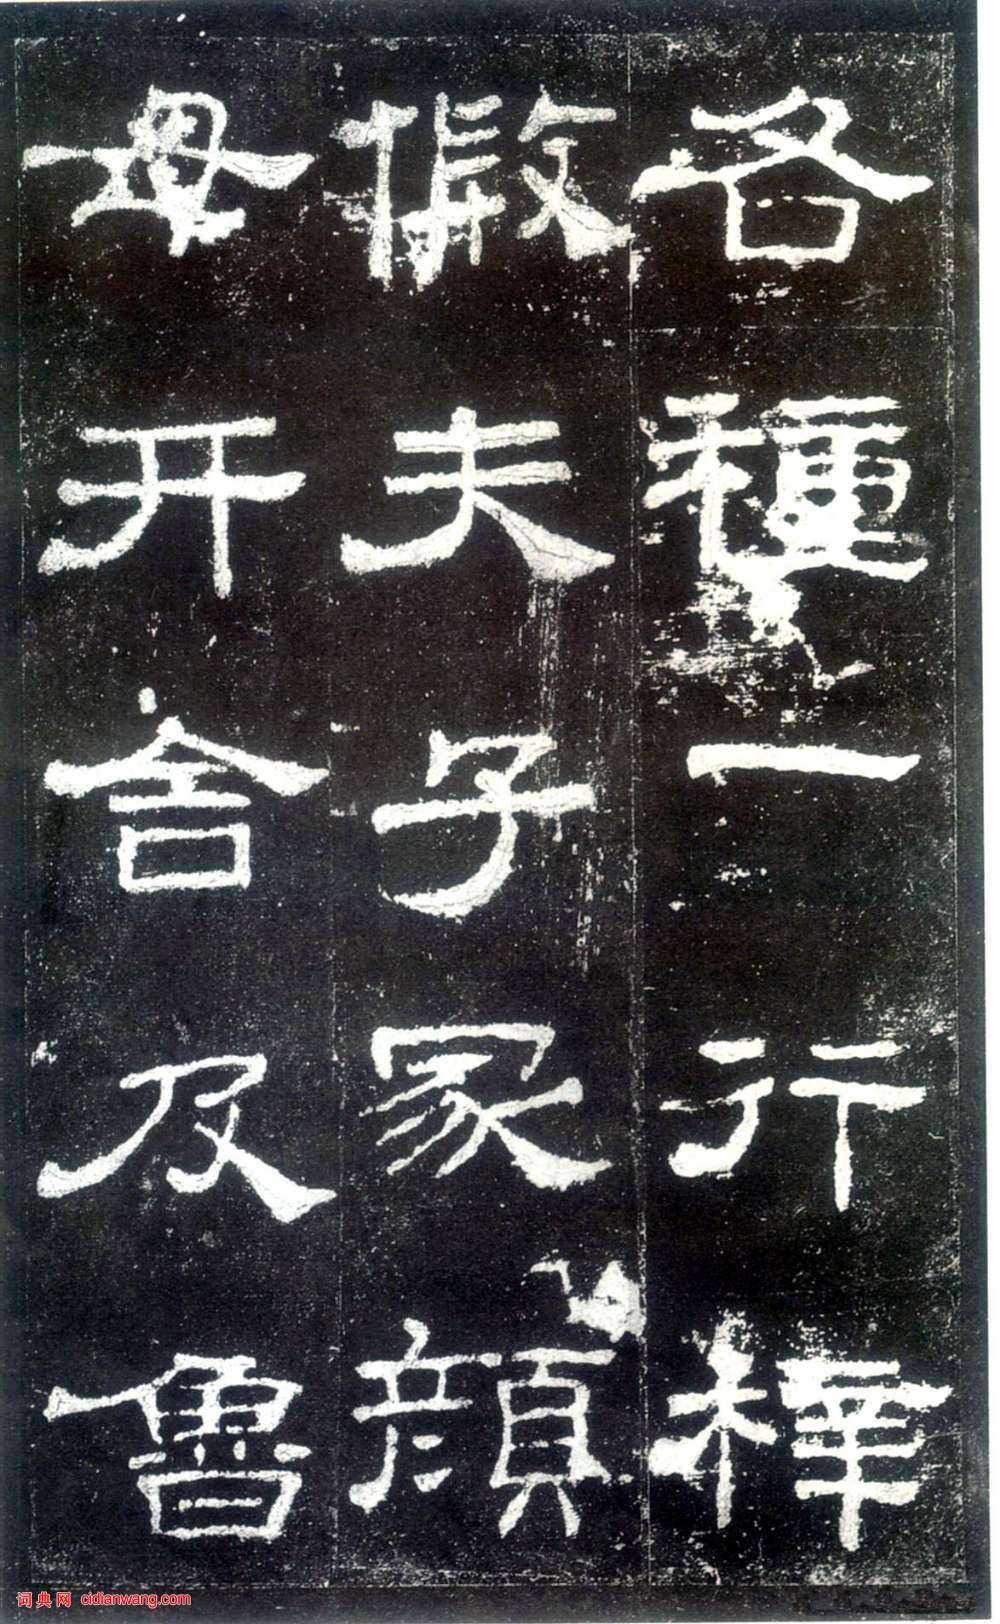 各種一行梓
假夫子冢顏
母开舍及魯
词典网 cidianwang.com